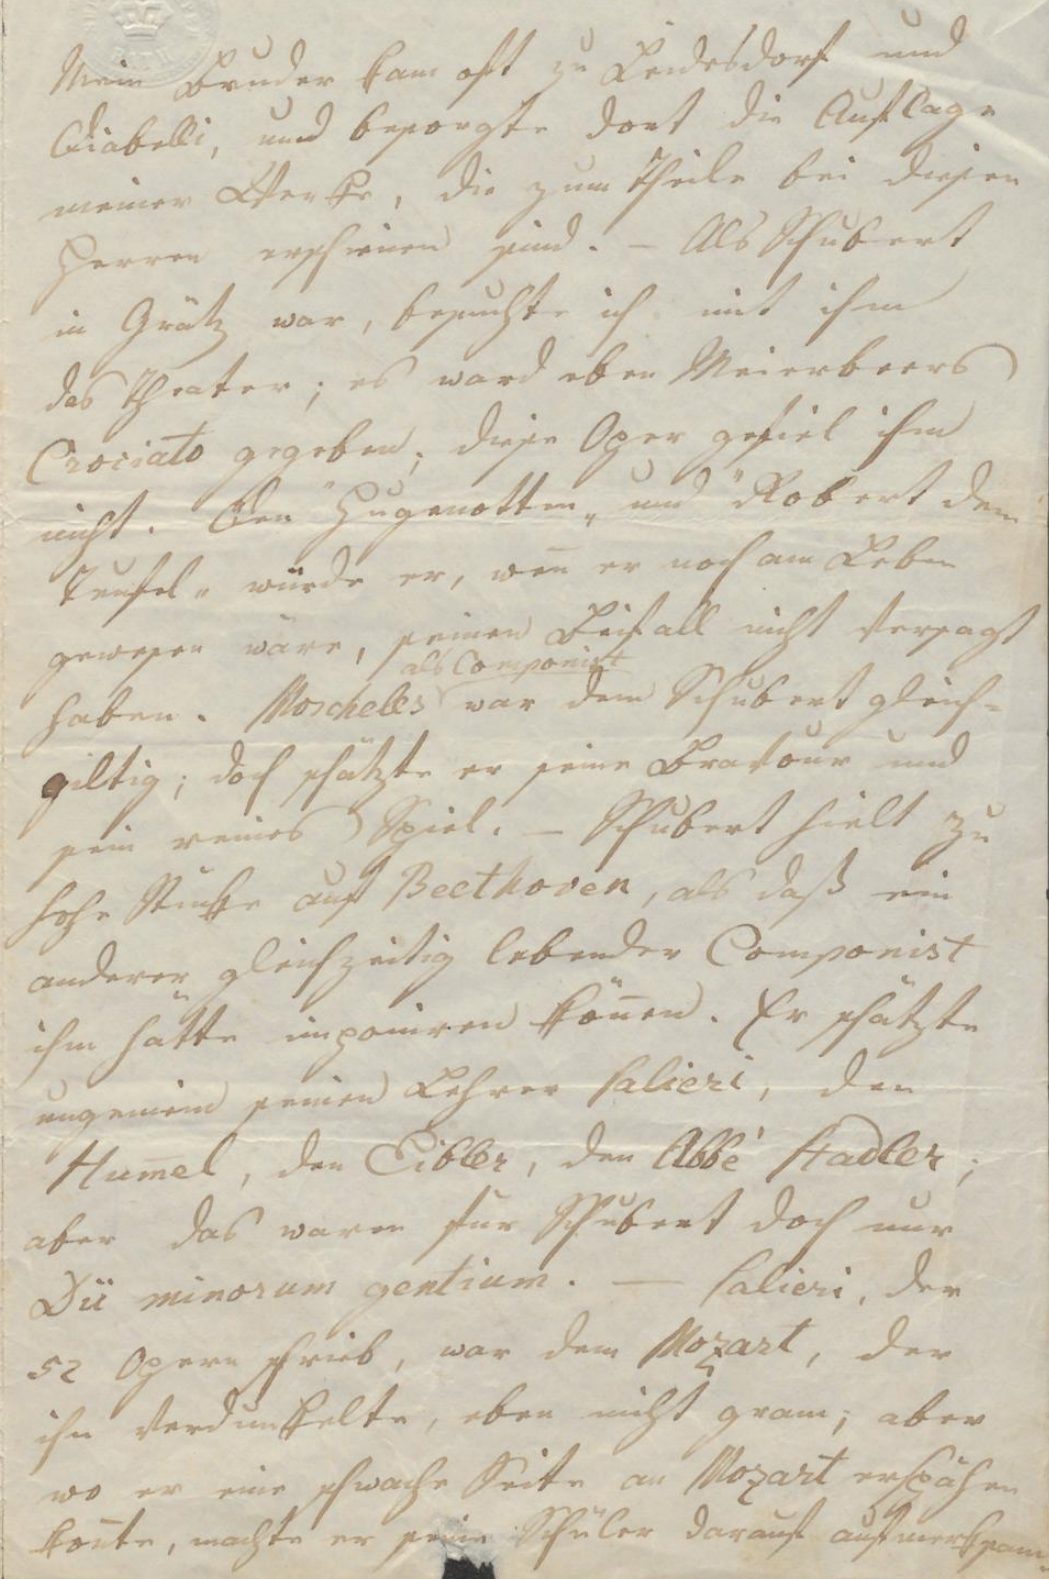 Mein Bruder kam oft zu Leidesdorf und
Diabelli, und besorgte dort die Auflage
meiner Werke, die zum Theile bei diesen
Herren erschienen sind. – Als Schubert
in Grätz war, besuchte ich mit ihm
das Theater; es ward eben Meierbeers
Crociato gegeben; diese Oper gefiel ihm
nicht. Den "Hugenotten" und "Robert dem
Teufel" würde er, wen̅ er noch am Leben
gewesen wäre, seinen Beifall nicht versagt
als Componist
haben. Moscheles war dem Schubert gleich-
giltig; doch schätzte er seine Bravour und
sein reines Spiel. – Schubert hielt zu
hohe Stücke auf Beethoven, als daß ein
anderer gleichzeitig lebender Componist
ihm hätte imponiren kön̅en. Er schätzte
ungemein seinen Lehrer Salieri, den
Hum̅el, den Eibler, den Abbé Stadler;
aber das waren für Schubert doch nur
Dii minorum gentium. — Salieri, der
52 Opern schrieb, war dem Mozart, der
ihn verdunkelte, eben nicht gram; aber
wo er eine schwache Seite an Mozart erspähen
kon̅te, machte er seine Schüler darauf aufmerksam.